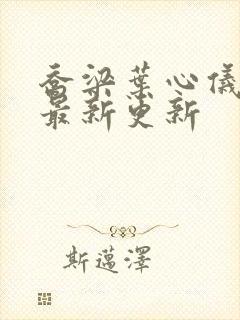 喬梁葉心儀
最新更新
斯邁澤